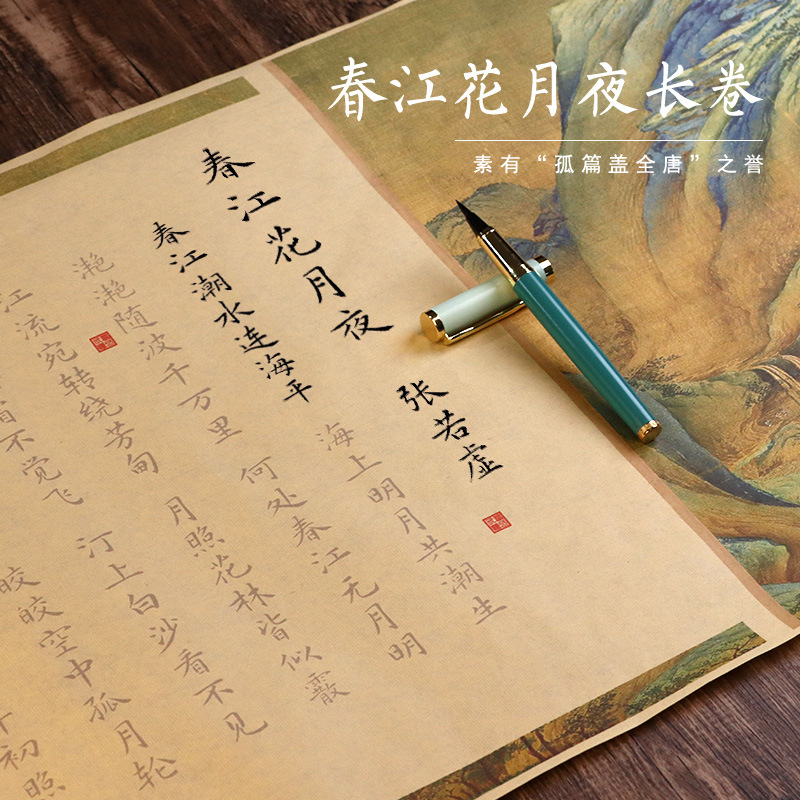 春江花月夜长卷
素有“孤篇盖全唐”之誉
春江花月夜 张若虚
春江潮水连海平 海上明月共潮生
滟滟随波千万里 何处春江无月明
江流宛转绕芳甸 月照花林皆似霰
不觉飞 汀上白沙看不见
皎皎空中孤月轮
初照